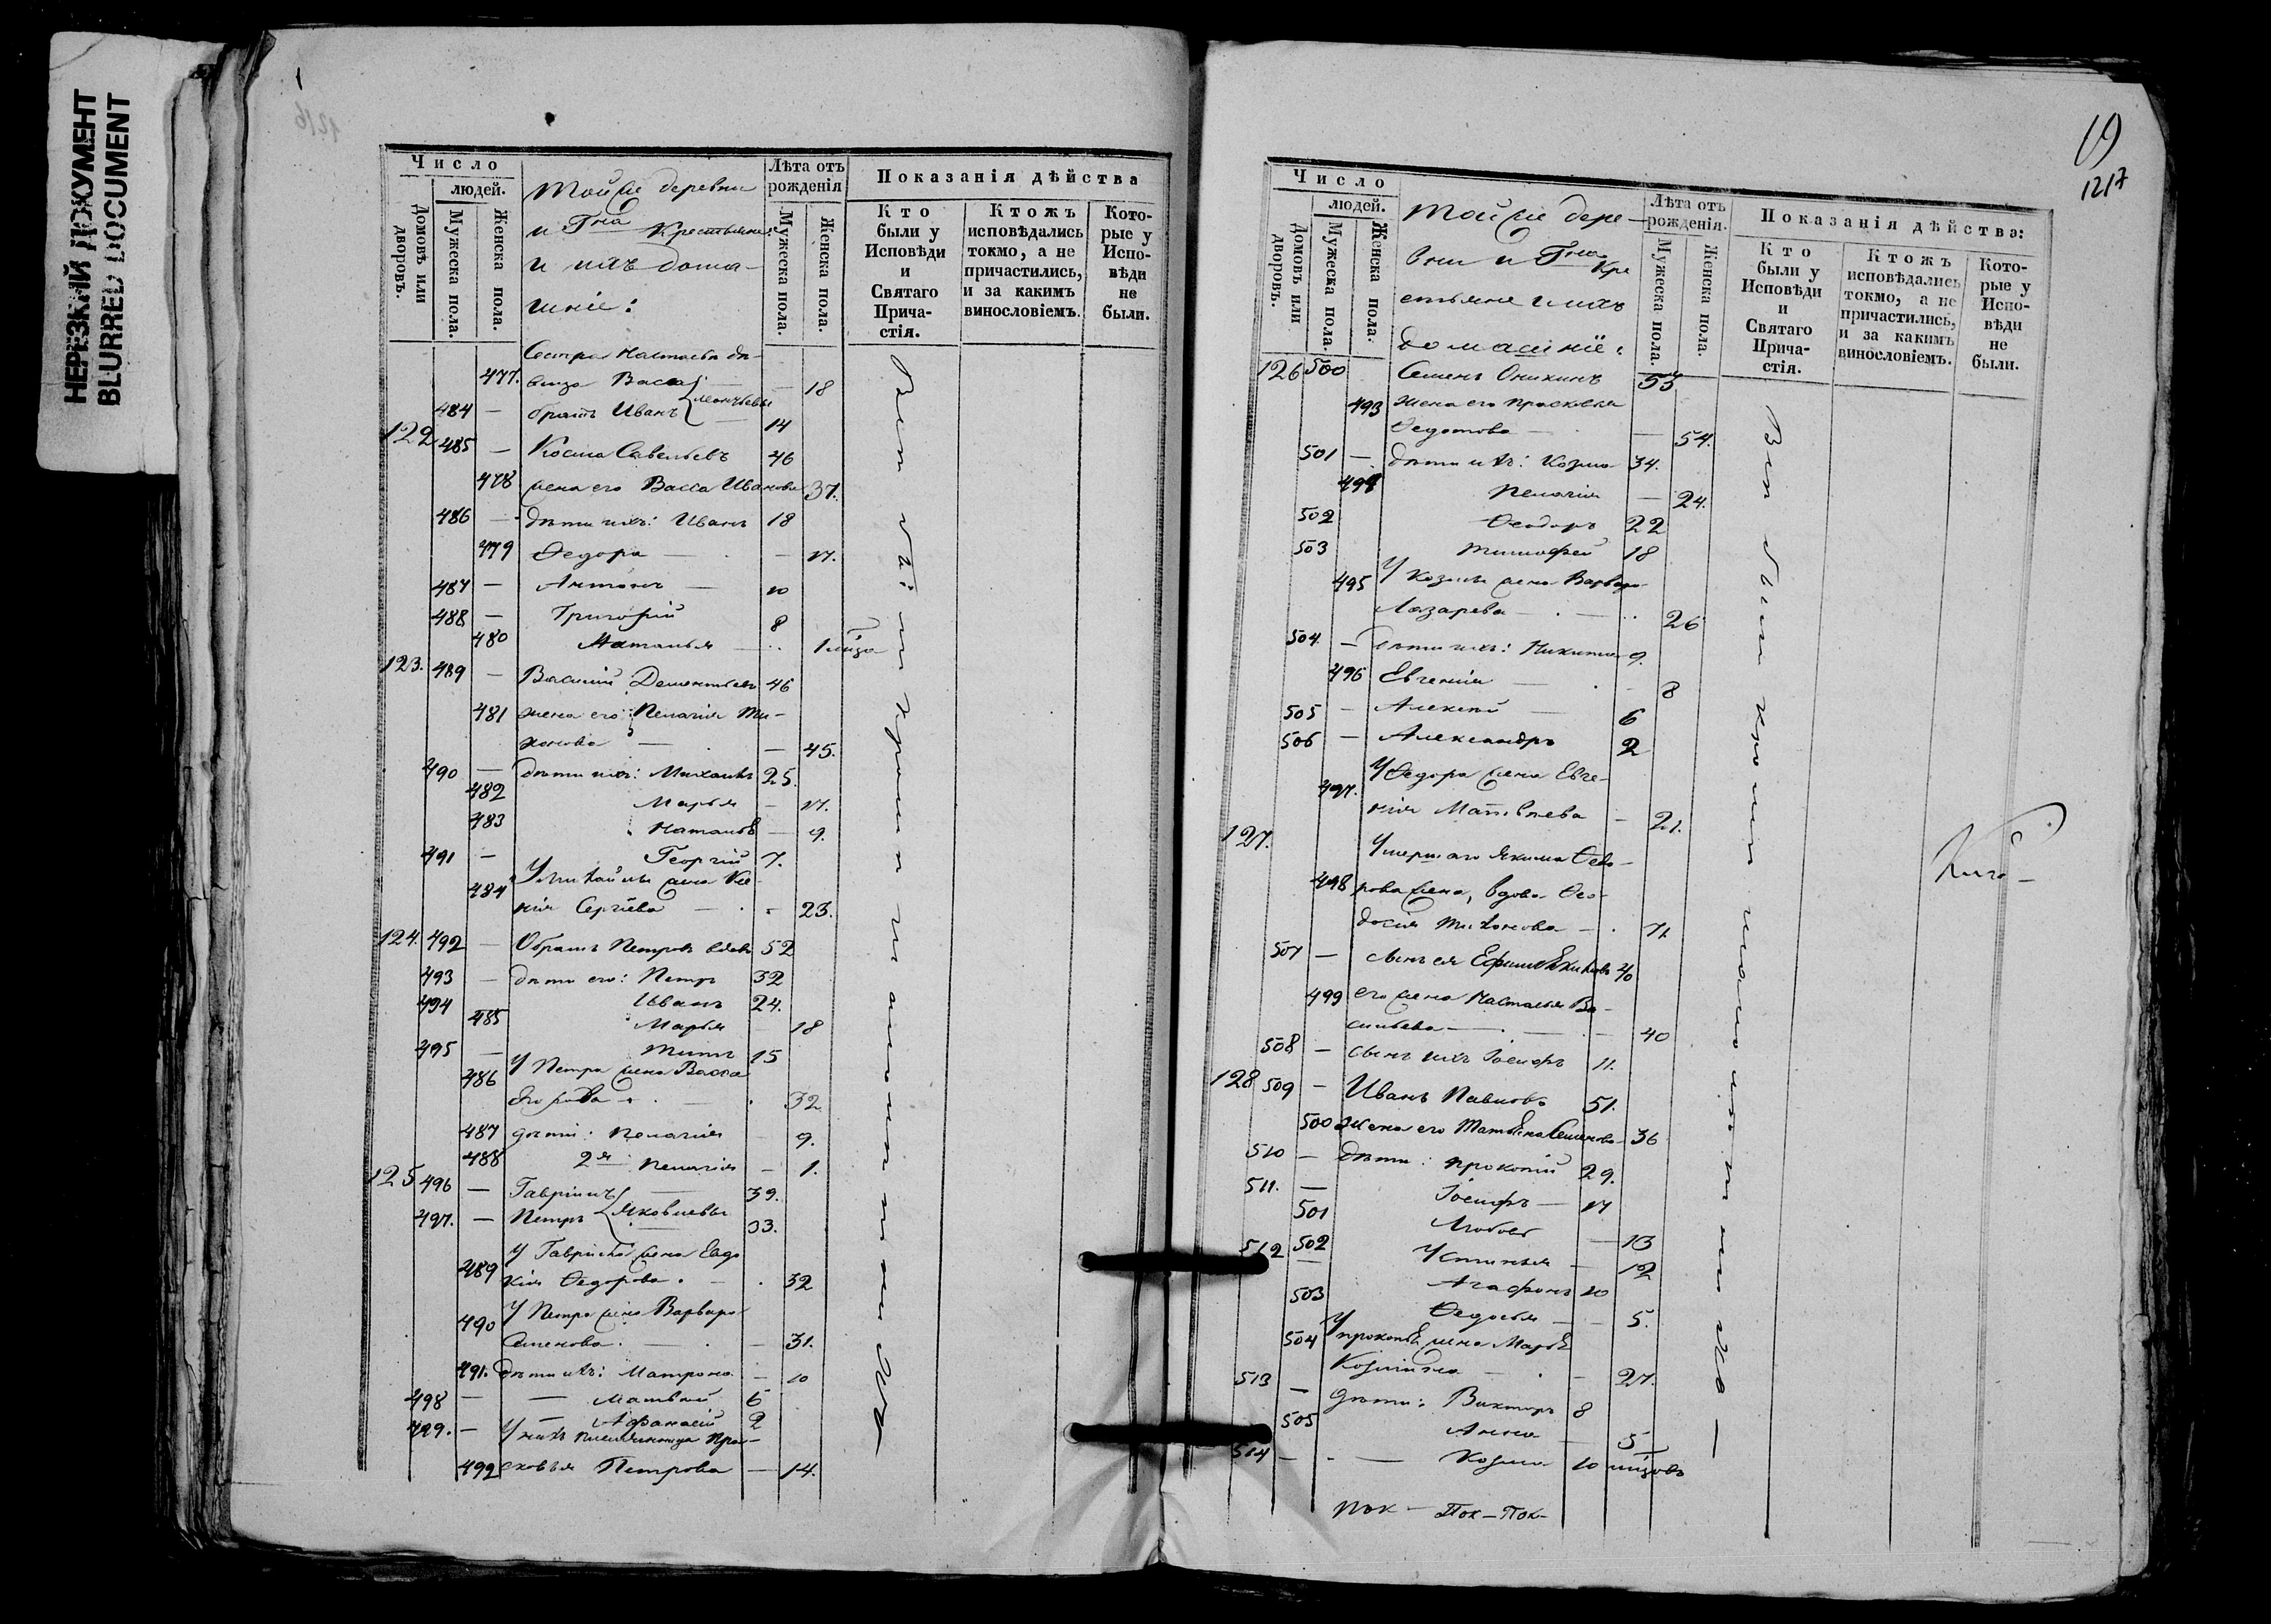 НЕРЕЗКИЙ ДОКУМЕНТ
BLURRED DOCUMENT
Число
людей.
Домовъ или дворовъ.
Мужеска пола.
Женска пола.
Тойже деревни
и Гна Крестьяне
и ихъ дома-
шніе:
Лѣта отъ рожденія
Мужеска пола.
Женска пола.
Показанія дѣйства
Кто были у Исповѣди и Святаго Прича-стія.
Ктожъ исповѣдались токмо, а не причастились, и за какимъ винословіемъ.
Кото-рые у Испо-вѣди не были.
Сестра Настасья дѣ-
477. вица Васса — 18
484 — братъ Иванъ 14
122 485 — Косма Савельевъ 46
478 жена его Васса Иванова 37.
486 — дѣти ихъ: Иванъ 18
479 Ѳедора — 17.
487 — Антонъ — 10
488 — Григорій 8
480 Наталья — 1
123. 489 — Василій Дементьевъ 46
481 жена его Пелагія Ти-
хонова — 45.
490 — дѣти ихъ: Михаилъ 25.
482 Марья — 17.
483 Наталья — 9.
491 — Георгій 7.
484 У Михайлы жена Ксе-
нія Сергѣева — 23.
124. 492 — Петровъ вдовъ 52
493 — дѣти его: Петръ 32
494 Иванъ 24.
485 Марья 18
495 — Титъ 15
486 У Петра жена Васса
Егорова — 32
487 дѣти: Пелагія 9.
488 2я Пелагія — 1.
125 496 — Гаврилъ 39.
497. — Петръ Яковлевы 33.
489 У Гаврилы жена Евдо
кія Ѳедорова. — 32
490 У Петра жена Варвара
Семенова. — 31.
491. дѣти ихъ: Матрона — 10
498 — Матвѣй 6
499. — Афанасій 2
У нихъ племянница Пра-
492 сковья Петрова — 14.
19
1217
Число
людей.
Домовъ или дворовъ.
Мужеска пола.
Женска пола.
Тойже дере-
вни и Гна Кре
стьяне и ихъ
домашніе:
Лѣта отъ рожденія.
Мужеска пола.
Женска пола.
Показанія дѣйства:
Кто были у Исповѣди и Святаго Прича-стія.
Ктожъ исповѣдались токмо, а не причастились, и за какимъ винословіемъ.
Кото-рые у Испо-вѣди не были.
126 500 Семенъ Оникинъ 53
493 жена его Прасковья
Ѳедотова — 54.
501 — дѣти ихъ: Козма 34.
494 Пелагія — 24.
502 Ѳеодоръ 22
503 Тимофей 18
495 У Козмы жена Варвара
Лазарева — 26
504. — дѣти ихъ: Никита 9.
496 Евгенія — 8
505 — Алексѣй — 6
506 — Александръ 2
497. У Ѳедора жена Евге-
нія Матвѣева — 21.
127. Умершаго Якима Ѳедо-
498 рова жена, вдова Ѳео-
досія Тихонова — 71
507 — сынъ ея Ефимъ Якимовъ 40
499 его жена Настасья Ва-
сильева — 40
508 — сынъ ихъ Іосифъ 11.
128 509 — Иванъ Павловъ 51.
500 жена его Татьяна Семенова 36
510 — дѣти: Прокопій 29.
511. — Іосифъ — 17
501 Любовь — 13
502 Устинья — 12
512 — Агафонъ 10
503 Ѳедосья — 5.
504 У Прокопья жена Марья
Козмина — 27.
513 — дѣти: Викторъ 8
505 Анна — 5
514 — Козма 10